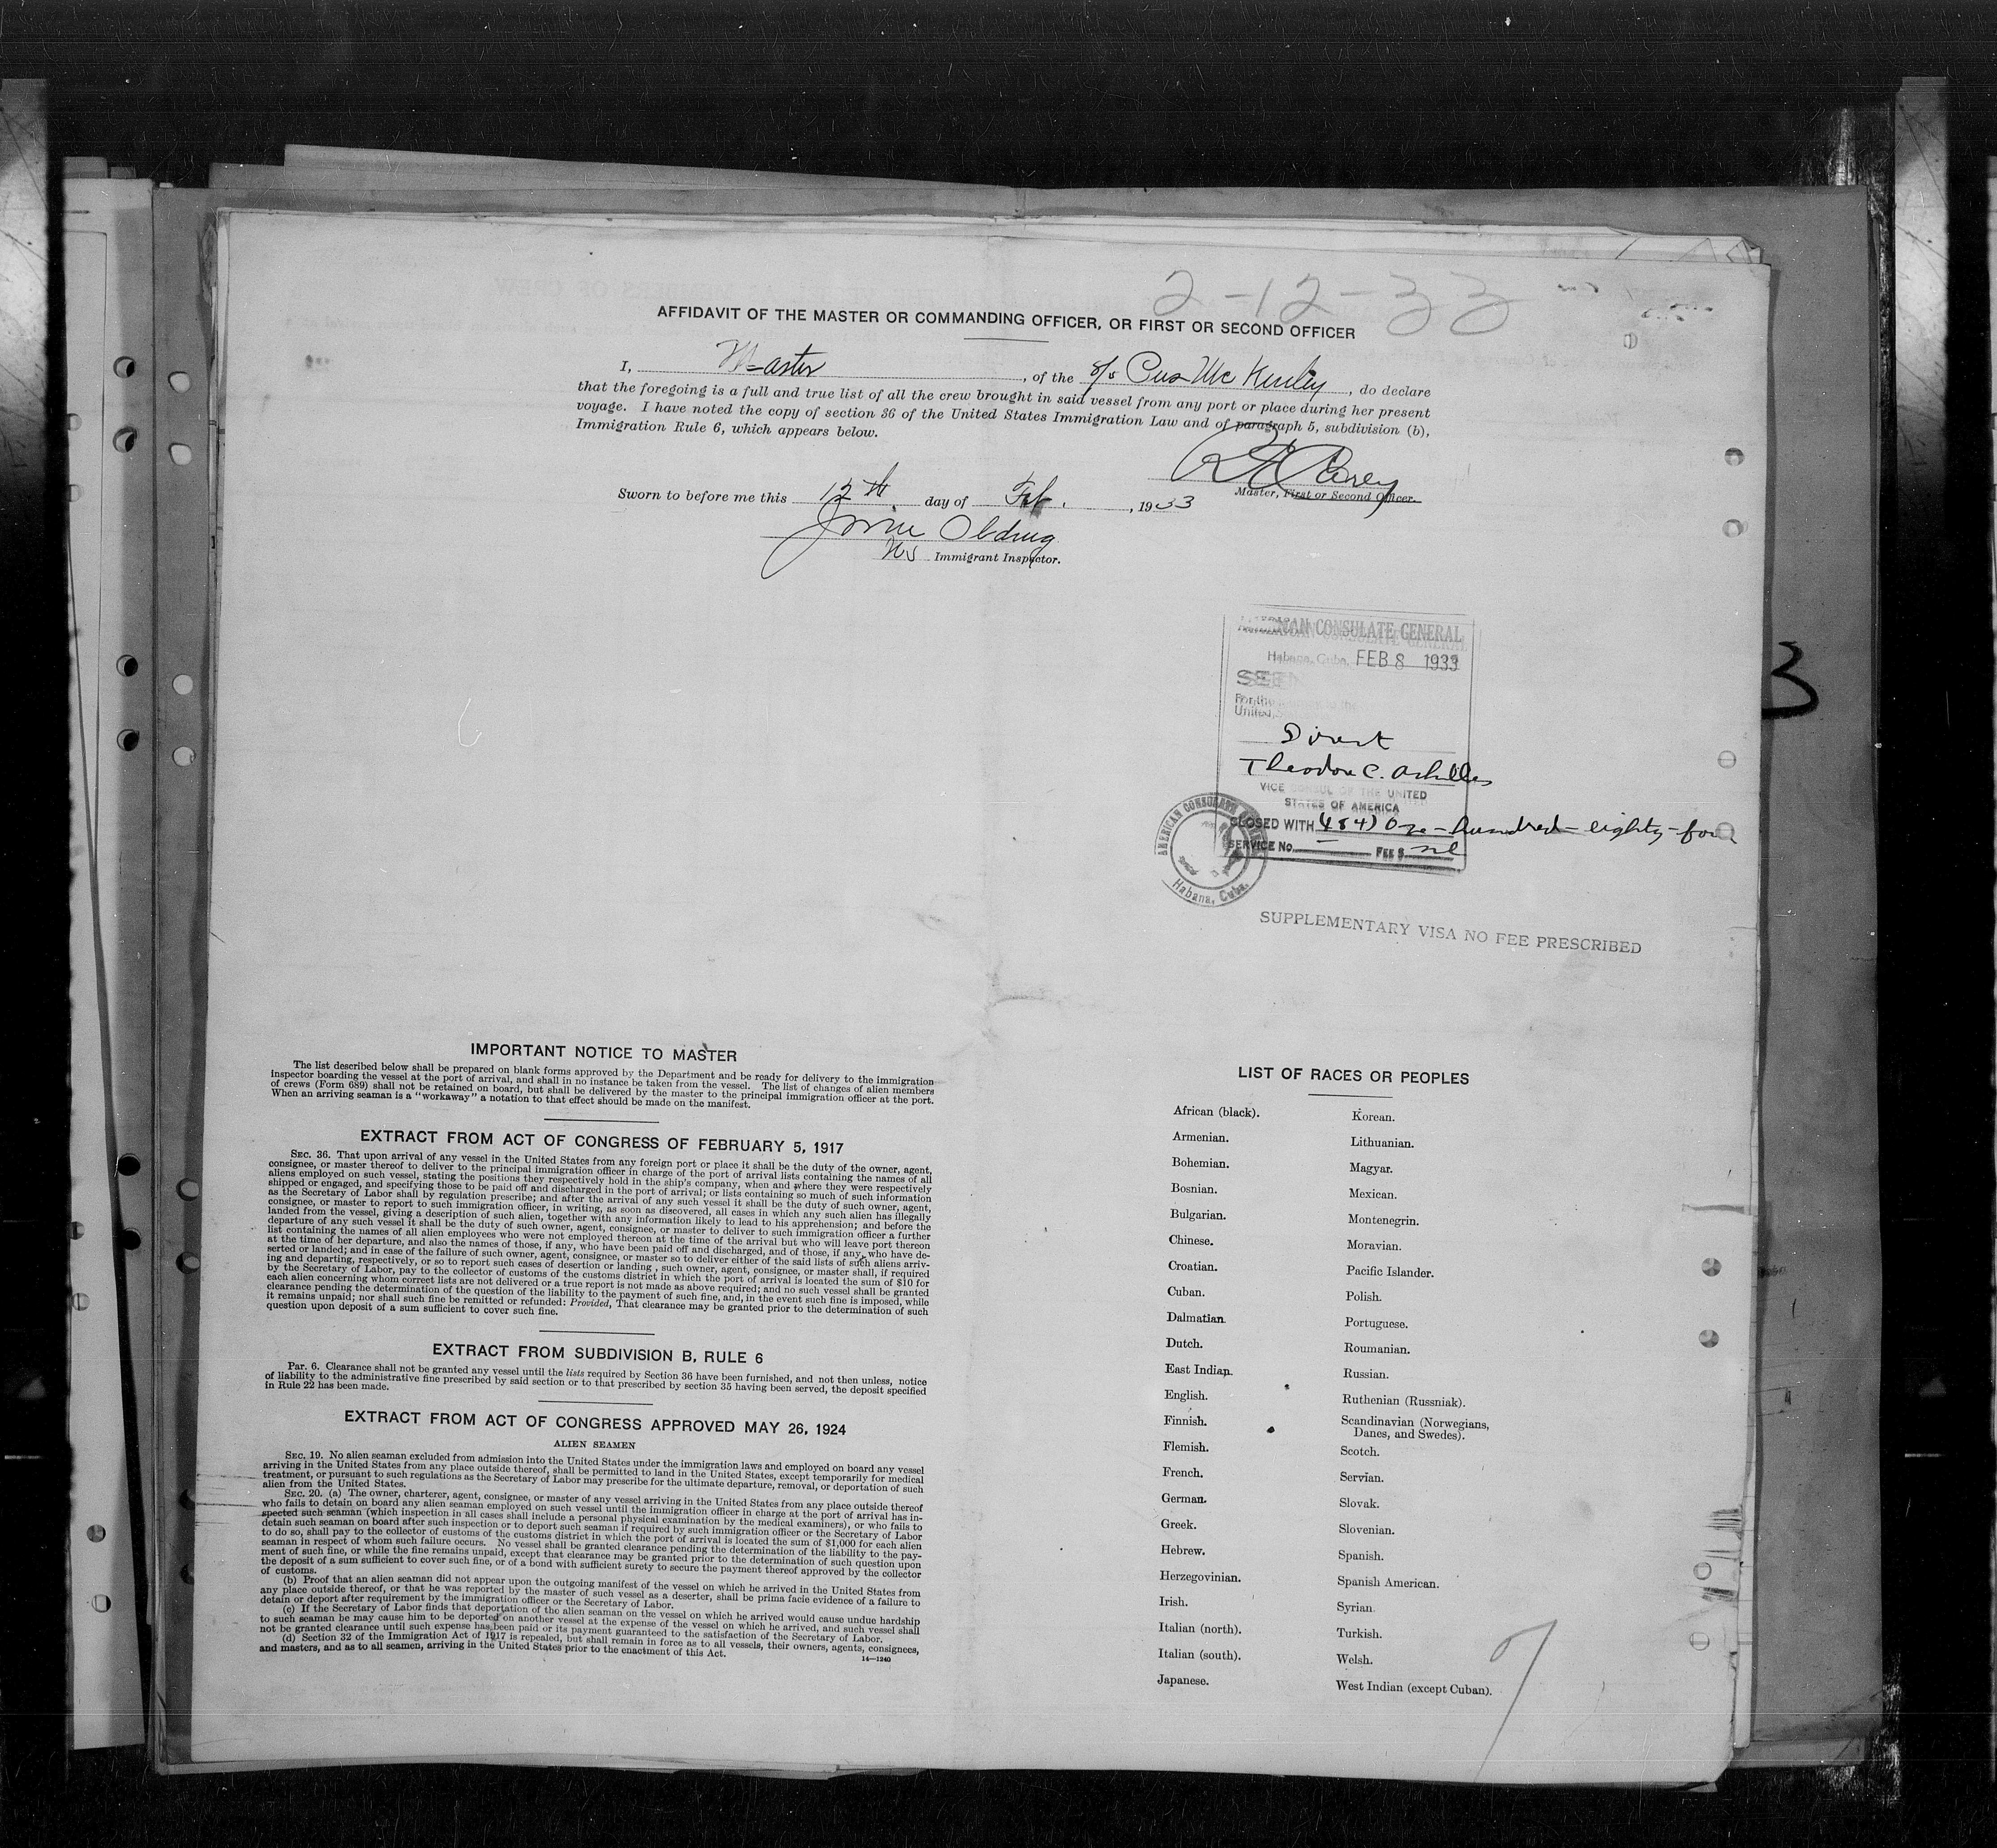 2-12-33
AFFIDAVIT OF THE MASTER OR COMMANDING OFFICER, OR FIRST OR SECOND OFFICER
I, Master, of the s/s Pres McKinley, do declare
that the foregoing is a full and true list of all the crew brought in said vessel from any port or place during her present
voyage. I have noted the copy of section 36 of the United States Immigration Law and of paragraph 5, subdivision (b),
Immigration Rule 6, which appears below.
Carey
Master, First or Second Officer.
Sworn to before me this 12th day of Feb., 1933
Immigrant Inspector.
AMERICAN CONSULATE GENERAL
Habana, Cuba, FEB 8 1933
SEEN
For the
United
Direct
Theodore C. Achilles
VICE CONSUL OF THE UNITED
STATES OF AMERICA
CLOSED WITH (184) One-hundred-eighty-four
SERVICE No. — FEE $ nil
AMERICAN CONSULATE GENERAL
Habana, Cuba.
SUPPLEMENTARY VISA NO FEE PRESCRIBED
3
IMPORTANT NOTICE TO MASTER
The list described below shall be prepared on blank forms approved by the Department and be ready for delivery to the immigration
inspector boarding the vessel at the port of arrival, and shall in no instance be taken from the vessel. The list of changes of alien members
of crews (Form 689) shall not be retained on board, but shall be delivered by the master to the principal immigration officer at the port.
When an arriving seaman is a "workaway" a notation to that effect should be made on the manifest.
EXTRACT FROM ACT OF CONGRESS OF FEBRUARY 5, 1917
SEC. 36. That upon arrival of any vessel in the United States from any foreign port or place it shall be the duty of the owner, agent,
consignee, or master thereof to deliver to the principal immigration officer in charge of the port of arrival lists containing the names of all
aliens employed on such vessel, stating the positions they respectively hold in the ship's company, when and where they were respectively
shipped or engaged, and specifying those to be paid off and discharged in the port of arrival; or lists containing so much of such information
as the Secretary of Labor shall by regulation prescribe; and after the arrival of any such vessel it shall be the duty of such owner, agent,
consignee, or master to report to such immigration officer, in writing, as soon as discovered, all cases in which any such alien has illegally
landed from the vessel, giving a description of such alien, together with any information likely to lead to his apprehension; and before the
departure of any such vessel it shall be the duty of such owner, agent, consignee, or master to deliver to such immigration officer a further
list containing the names of all alien employees who were not employed thereon at the time of the arrival but who will leave port thereon
at the time of her departure, and also the names of those, if any, who have been paid off and discharged, and of those, if any, who have de-
serted or landed; and in case of the failure of such owner, agent, consignee, or master so to deliver either of the said lists of such aliens arriv-
ing and departing, respectively, or so to report such cases of desertion or landing, such owner, agent, consignee, or master shall, if required
by the Secretary of Labor, pay to the collector of customs of the customs district in which the port of arrival is located the sum of $10 for
each alien concerning whom correct lists are not delivered or a true report is not made as above required; and no such vessel shall be granted
clearance pending the determination of the question of the liability to the payment of such fine, and, in the event such fine is imposed, while
it remains unpaid; nor shall such fine be remitted or refunded: Provided, That clearance may be granted prior to the determination of such
question upon deposit of a sum sufficient to cover such fine.
EXTRACT FROM SUBDIVISION B, RULE 6
Par. 6. Clearance shall not be granted any vessel until the lists required by Section 36 have been furnished, and not then unless, notice
of liability to the administrative fine prescribed by said section or to that prescribed by section 35 having been served, the deposit specified
in Rule 22 has been made.
EXTRACT FROM ACT OF CONGRESS APPROVED MAY 26, 1924
ALIEN SEAMEN
SEC. 19. No alien seaman excluded from admission into the United States under the immigration laws and employed on board any vessel
arriving in the United States from any place outside thereof, shall be permitted to land in the United States, except temporarily for medical
treatment, or pursuant to such regulations as the Secretary of Labor may prescribe for the ultimate departure, removal, or deportation of such
alien from the United States.
SEC. 20. (a) The owner, charterer, agent, consignee, or master of any vessel arriving in the United States from any place outside thereof
who fails to detain on board any alien seaman employed on such vessel until the immigration officer in charge at the port of arrival has in-
spected such seaman (which inspection in all cases shall include a personal physical examination by the medical examiners), or who fails to
detain such seaman on board after such inspection or to deport such seaman if required by such immigration officer or the Secretary of Labor
to do so, shall pay to the collector of customs of the customs district in which the port of arrival is located the sum of $1,000 for each alien
seaman in respect of whom such failure occurs. No vessel shall be granted clearance pending the determination of the liability to the pay-
ment of such fine, or while the fine remains unpaid, except that clearance may be granted prior to the determination of such question upon
the deposit of a sum sufficient to cover such fine, or of a bond with sufficient surety to secure the payment thereof approved by the collector
of customs.
(b) Proof that an alien seaman did not appear upon the outgoing manifest of the vessel on which he arrived in the United States from
any place outside thereof, or that he was reported by the master of such vessel as a deserter, shall be prima facie evidence of a failure to
detain or deport after requirement by the immigration officer or the Secretary of Labor.
(c) If the Secretary of Labor finds that deportation of the alien seaman on the vessel on which he arrived would cause undue hardship
to such seaman he may cause him to be deported on another vessel at the expense of the vessel on which he arrived, and such vessel shall
not be granted clearance until such expense has been paid or its payment guaranteed to the satisfaction of the Secretary of Labor.
(d) Section 32 of the Immigration Act of 1917 is repealed, but shall remain in force as to all vessels, their owners, agents, consignees,
and masters, and as to all seamen, arriving in the United States prior to the enactment of this Act.
14—1240
LIST OF RACES OR PEOPLES
African (black).
Armenian.
Bohemian.
Bosnian.
Bulgarian.
Chinese.
Croatian.
Cuban.
Dalmatian.
Dutch.
East Indian.
English.
Finnish.
Flemish.
French.
German.
Greek.
Hebrew.
Herzegovinian.
Irish.
Italian (north).
Italian (south).
Japanese.
Korean.
Lithuanian.
Magyar.
Mexican.
Montenegrin.
Moravian.
Pacific Islander.
Polish.
Portuguese.
Roumanian.
Russian.
Ruthenian (Russniak).
Scandinavian (Norwegians,
Danes, and Swedes).
Scotch.
Servian.
Slovak.
Slovenian.
Spanish.
Spanish American.
Syrian.
Turkish.
Welsh.
West Indian (except Cuban).